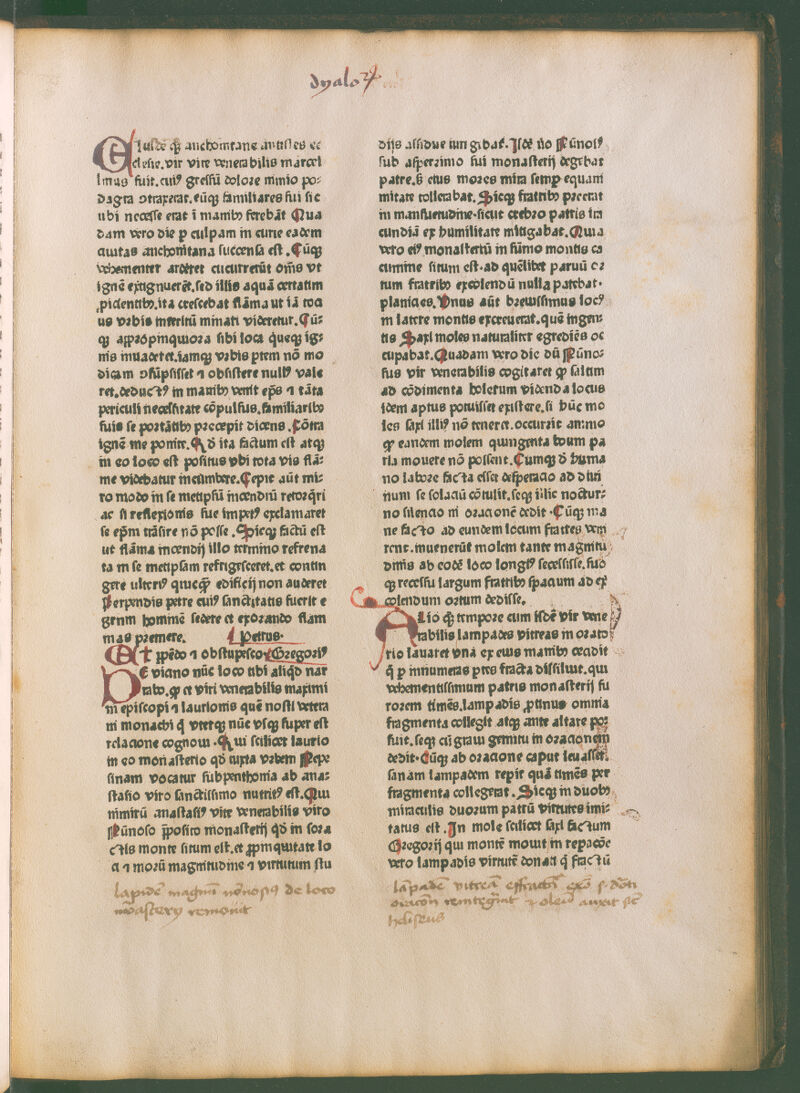 dyalo24
Eiusdē qꝫ anchonitane antistes ec
clesie.vir vite venerabilis marcel
linus fuit.cuiꝰ gressū dolore nimio po⸗
dagra ↄtraxerat.eūqꝫ familiares sui sic
ubi necesse erat ī manibꝫ ferebāt Qua
dam vero die ꝑ culpam in curie eadem
ciuitas anchonitana succensa est.Cūqꝫ
vehementer arderet cucurrerūt om̄s vt
ignē extinguerēt.sed illis aquā certatim
ꝓicientibꝫ.ita crescebat flāma ut iā toci
us vrbis interitū minari videretur.Cū⸗
qꝫ appropinquiora sibi loca queqꝫ ig⸗
nis inuaderet.iamqꝫ vrbis ꝑtem nō mo
dicam ↄsūpsisset ⁊ obsistere nullꝰ vale
ret.deductꝰ in manibꝫ venit ep̄s ⁊ tāta
periculi necessitate cōpulsus.familiaribꝫ
suis se portātibꝫ precepit dicens.Cōtra
ignē me ponite.Qd̄ ita factum est atqꝫ
in eo loco est positus vbi tota vis flā⸗
me videbatur incumbere.Cepit aūt mi⸗
ro modo in se metipsū incendiū retorq̄ri
ac si reflexionis sue impetꝰ exclamaret
se ep̄m trāsire nō posse.Sicqꝫ factū est
ut flāma incendij illo termino refrena
ta in se metipsam refrigesceret.et contin
gere ulteriꝰ quicqꝫ edificij non auderet
Perpendis petre cuiꝰ sanctitatis fuerit e
grum hominē sedere et exorando flam
mas premere. Petrus.
Et ꝓpēdo ⁊ obstupesco Gregoriꝰ
De vicino nūc loco tibi aliqd̄ nar
rabo.qꝫ et viri venerabilis maximi
ni episcopi ⁊ laurionis quē nosti vetera
ni monachi q̄ vterqꝫ nūc vsqꝫ super est
relacione cognoui.Qui scilicet laurio
in eo monasterio qd̄ iuxta vrbem Nepe
sinam vocatur subpenthonia ab ana⸗
stasio viro sanctissimo nutritꝰ est.Qui
nimirū anastasiꝰ vite venerabilis viro
Nūnoso p̄posito monasterij qd̄ in sora
ctis monte situm est.et ꝓpinquitate lo
ci ⁊ morū magnitudine ⁊ virtutum stu
lapidē magnū nōnosꝰ de loco
mōastery remouit
dijs assidue iungebat̄.Isdē v̄o Nūnosꝰ
sub asperrimo sui monasterij degebat
patre.sꝫ eius mores mira semꝑ equani
mitate tollerabat.Sicqꝫ fratribꝫ preerat
in mansuetudine.sicut crebro patris ira
cundiā ex humilitate mitigabat.Quia
vero eiꝰ monasteriū in sūmo montis ca
cumine situm est.ad quēlibet paruū or
tum fratribꝫ excolendū nulla patebat.
planicies.Vnus aūt breuissimus locꝰ
in latere montis excreuerat.quē ingen⸗
tis Saxi moles naturaliter egrediēs oc
cupabat.Quadam vero die dū Nūno⸗
sus vir venerabilis cogitaret qꝫ saltim
ad cōdimenta holerum videnda locus
idem aptus potuisset existere.si hūc mo
les saxi illiꝰ nō teneret.occurrit animo
qꝫ eandem molem quingenta boum pa
ria mouere nō possent.Cumqꝫ d̄ huma
no labore facta esset desperacio ad diui
num se solaciū cōtulit.seqꝫ illic noctur⸗
no silencio in oracione dedit.Cūqꝫ ma
ne facto ad eundem locum fratres veni
rent.inuenerūt molem tante magnitu
dinis ab eodē loco longiꝰ secessisse.suo
qꝫ recessu largum fratribꝫ spacium ad ex
colendum ortum dedisse.
Alio qꝫ tempore cum isdē vir vene
rabilis lampades vitreas in orato
rio lauaret vna ex eius manibꝫ cecidit
q̄ ꝑ innumeras ꝑtes fracta dissiluit.qui
vehementissimum patris monasterij fu
rorem timēs.lampadis ꝓtinus omnia
fragmenta collegit atqꝫ ante altare po⸗
suit.seqꝫ cū graui gemitu in oracionem
dedit.Cūqꝫ ab oracione caput leuasset.
sanam lampadem repit quā timēs per
fragmenta collegerat.Sicqꝫ in duobꝫ
miraculis duorum patrū virtutes imi⸗
tatus est.In mole scilicet saxi factum
Gregorij qui montē mouit in repacōe
vero lampadis virtutē donati q̄ fractū
lāpadē vitreā effractā
oracōn reintegrauit ⁊ oleū auxit sic
heliseus